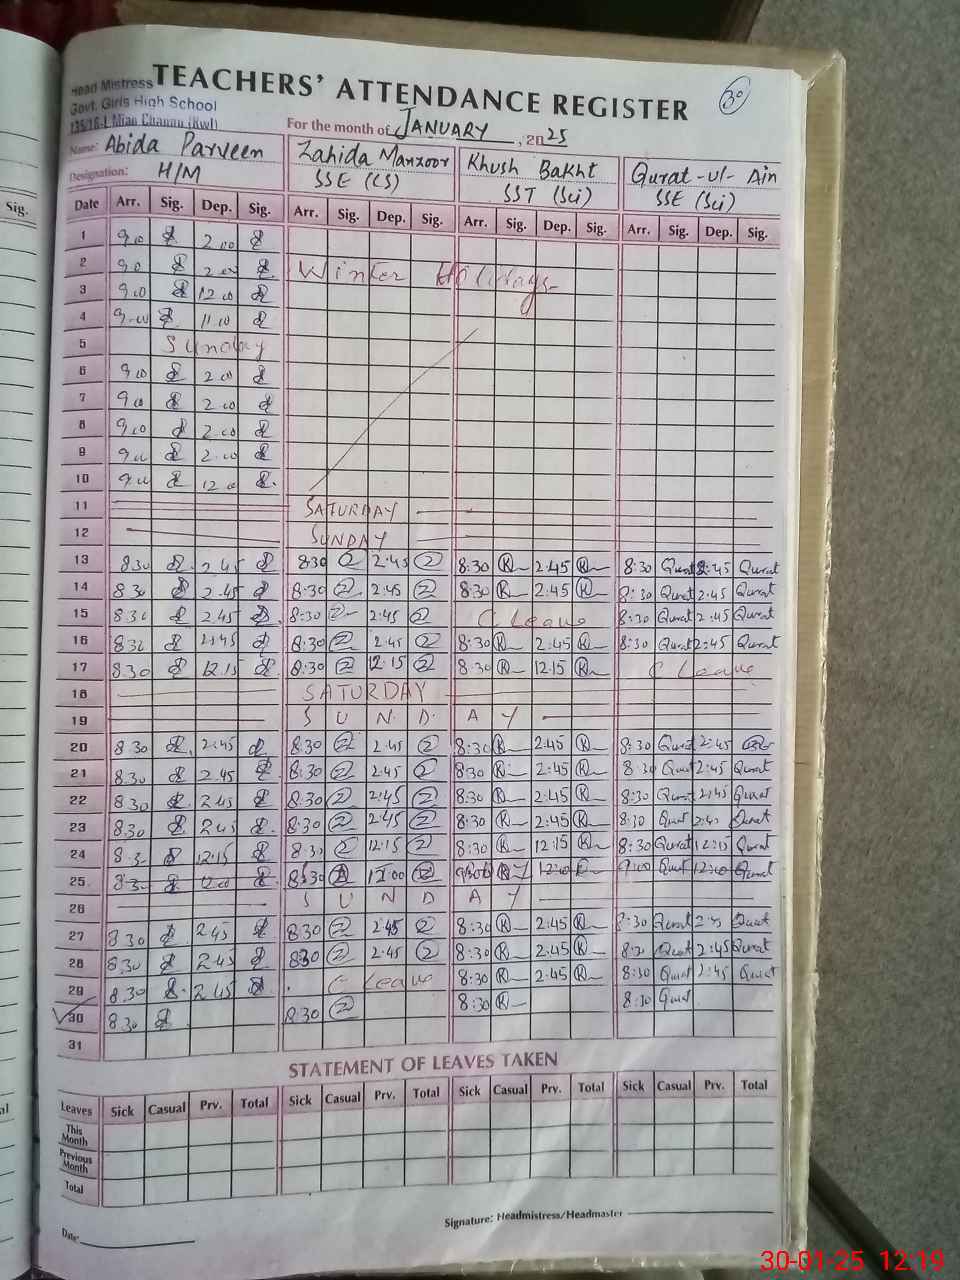 TEACHERS' ATTENDANCE REGISTER
30
Head Mistress
Govt. Girls High School
135/16-L Mian Channu (Kwl)
For the month of JANUARY, 2025
Name: Abida Parveen Zahida Manzoor Khush Bakht Qurat-ul-Ain
Designation: H/M SSE (CS) SST (Sci) SSE (Sci)
Sig. Date Arr. Sig. Dep. Sig. Arr. Sig. Dep. Sig. Arr. Sig. Dep. Sig. Arr. Sig. Dep. Sig.
1 9.00 2.00
2 9.0 2.00 Winter Holidays
3 9.00 12.00
4 9.00 11.00
5 Sunday
6 9.00 2.00
7 9.00 2.00
8 9.00 2.00
9 9.00 2.00
10 9.00 12.0
11 SATURDAY
12 SUNDAY
13 8.30 2.45 8:30 2.45 8:30 K 2.45 K 8:30 Qurat 2:45 Qurat
14 8.30 2.45 8:30 2.45 8:30 K 2.45 K 8:30 Qurat 2.45 Qurat
15 8.30 2.45 8:30 2.45 C Leave 8:30 Qurat 2:45 Qurat
16 8.30 2.45 8:30 2.45 8:30 K 2:45 K 8:30 Qurat 2:45 Qurat
17 8.30 12.15 8:30 12.15 8:30 K 12.15 K C Leave
18 SATURDAY
19 SUNDAY
20 8.30 2.45 8:30 2.45 8:30 K 2:45 K 8:30 Qurat 2:45
21 8.30 2.45 8:30 2.45 8:30 K 2:45 K 8:30 Qurat 2:45 Qurat
22 8.30 2.45 8:30 2:45 8:30 K 2:45 K 8:30 Qurat 2:45 Qurat
23 8.30 2.45 8:30 2.45 8:30 K 2:45 K 8:30 Qurat Qurat
24 8.3 12.15 8:30 12.15 8:30 K 12.15 K 8:30 Qurat 12:15 Qurat
25 8.3 12.00 8:30 12.00 9:00 Qurat 12:00 Qurat
26 SUNDAY
27 8.30 2.45 8:30 2.45 8:30 K 2.45 K 8:30 Qurat Qurat
28 8.30 2.45 8:30 2.45 8:30 K 2.45 K 8:30 Qurat 2:45 Qurat
29 8.30 2.45 C Leave 8:30 K 2.45 K 8:30 Qurat 2:45 Qurat
30 8.30 8:30 8:30 K 8:30 Qurat
31
STATEMENT OF LEAVES TAKEN
Leaves Sick Casual Prv. Total Sick Casual Prv. Total Sick Casual Prv. Total Sick Casual Prv. Total
This Month
Previous Month
Total
Signature: Headmistress/Headmaster
Date:
30-01-25 12:19